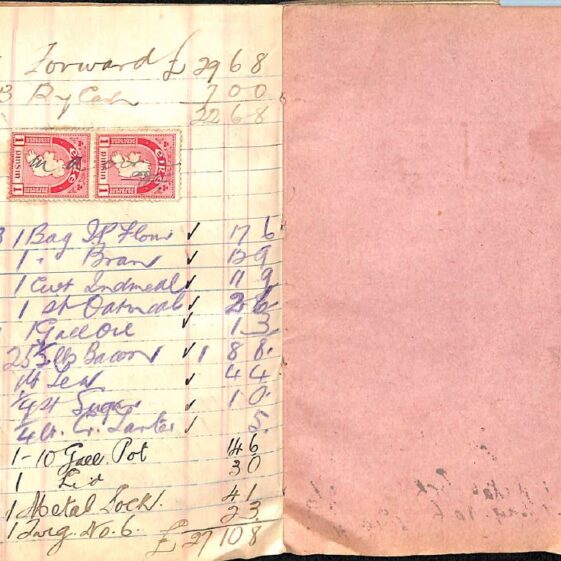 Forward £ 29 6 8
By Cash 7 0 0
22 6 8
EIRE
1 pinsin
EIRE
1 pinsin
1 Bag Flour ✓ 17 6
1 " Bran ✓ 13 9
1 Cwt Indmeal ✓ 11 9
1 st Oatmeal ✓ 2 6
1 Gall Oil ✓ 1 3
lbs Bacon ✓ 1 8 8
Tea ✓ 4 4
Sugar ✓ 1 0
Cr. Tarter ✓ 5
1-10 Gall. Pot 14 6
1 Lid 3 0
1 Metal Lock. 4 1
1 No. 6. 2 3
£ 27 10 8